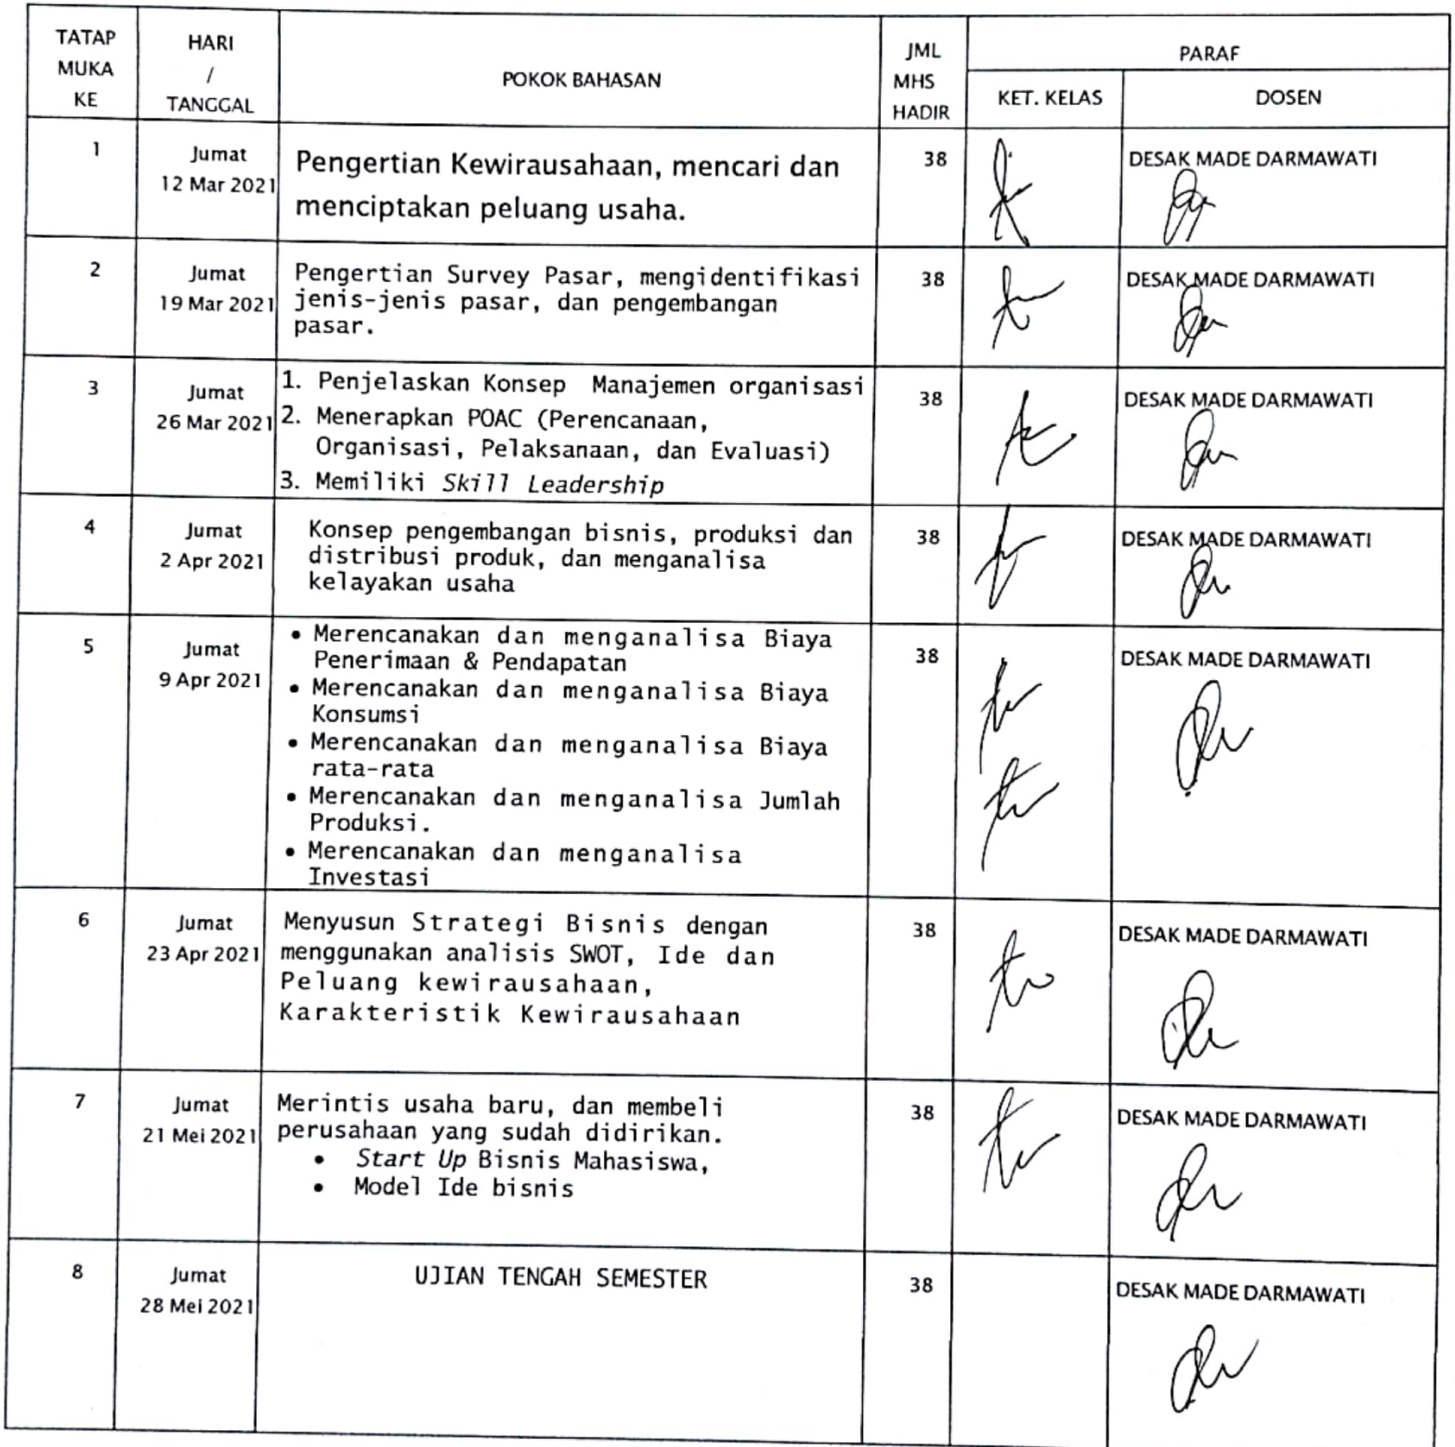 TATAP
MUKA
KE
HARI
/
TANGGAL
POKOK BAHASAN
JML
MHS
HADIR
PARAF
KET. KELAS
DOSEN
1
Jumat
12 Mar 2021
Pengertian Kewirausahaan, mencari dan
menciptakan peluang usaha.
38
DESAK MADE DARMAWATI
2
Jumat
19 Mar 2021
Pengertian Survey Pasar, mengidentifikasi
jenis-jenis pasar, dan pengembangan
pasar.
38
DESAK MADE DARMAWATI
3
Jumat
26 Mar 2021
1. Penjelaskan Konsep Manajemen organisasi
2. Menerapkan POAC (Perencanaan,
Organisasi, Pelaksanaan, dan Evaluasi)
3. Memiliki Skill Leadership
38
DESAK MADE DARMAWATI
4
Jumat
2 Apr 2021
Konsep pengembangan bisnis, produksi dan
distribusi produk, dan menganalisa
kelayakan usaha
38
DESAK MADE DARMAWATI
5
Jumat
9 Apr 2021
• Merencanakan dan menganalisa Biaya
Penerimaan & Pendapatan
• Merencanakan dan menganalisa Biaya
Konsumsi
• Merencanakan dan menganalisa Biaya
rata-rata
• Merencanakan dan menganalisa Jumlah
Produksi.
• Merencanakan dan menganalisa
Investasi
38
DESAK MADE DARMAWATI
6
Jumat
23 Apr 2021
Menyusun Strategi Bisnis dengan
menggunakan analisis SWOT, Ide dan
Peluang kewirausahaan,
Karakteristik Kewirausahaan
38
DESAK MADE DARMAWATI
7
Jumat
21 Mei 2021
Merintis usaha baru, dan membeli
perusahaan yang sudah didirikan.
• Start Up Bisnis Mahasiswa,
• Model Ide bisnis
38
DESAK MADE DARMAWATI
8
Jumat
28 Mei 2021
UJIAN TENGAH SEMESTER
38
DESAK MADE DARMAWATI